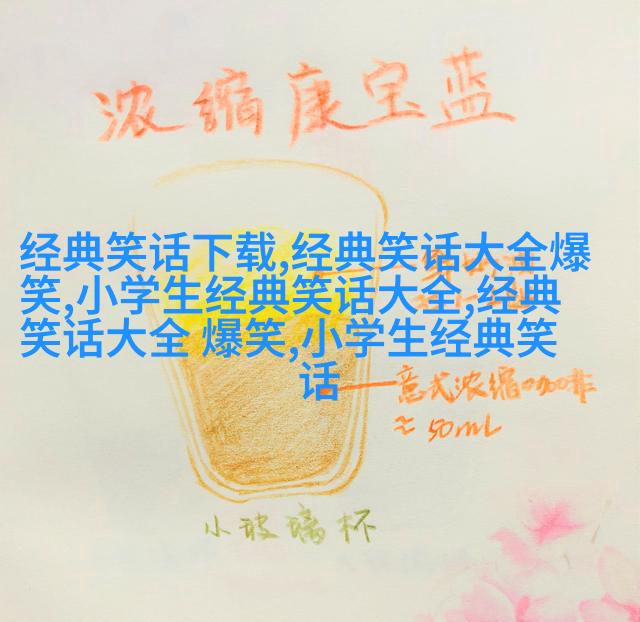 浓缩康宝蓝
经典笑话下载,经典笑话大全爆
笑,小学生经典笑话大全,经典
笑话大全 爆笑,小学生经典笑
话
意式浓缩咖啡
≈50mL
小玻璃杯